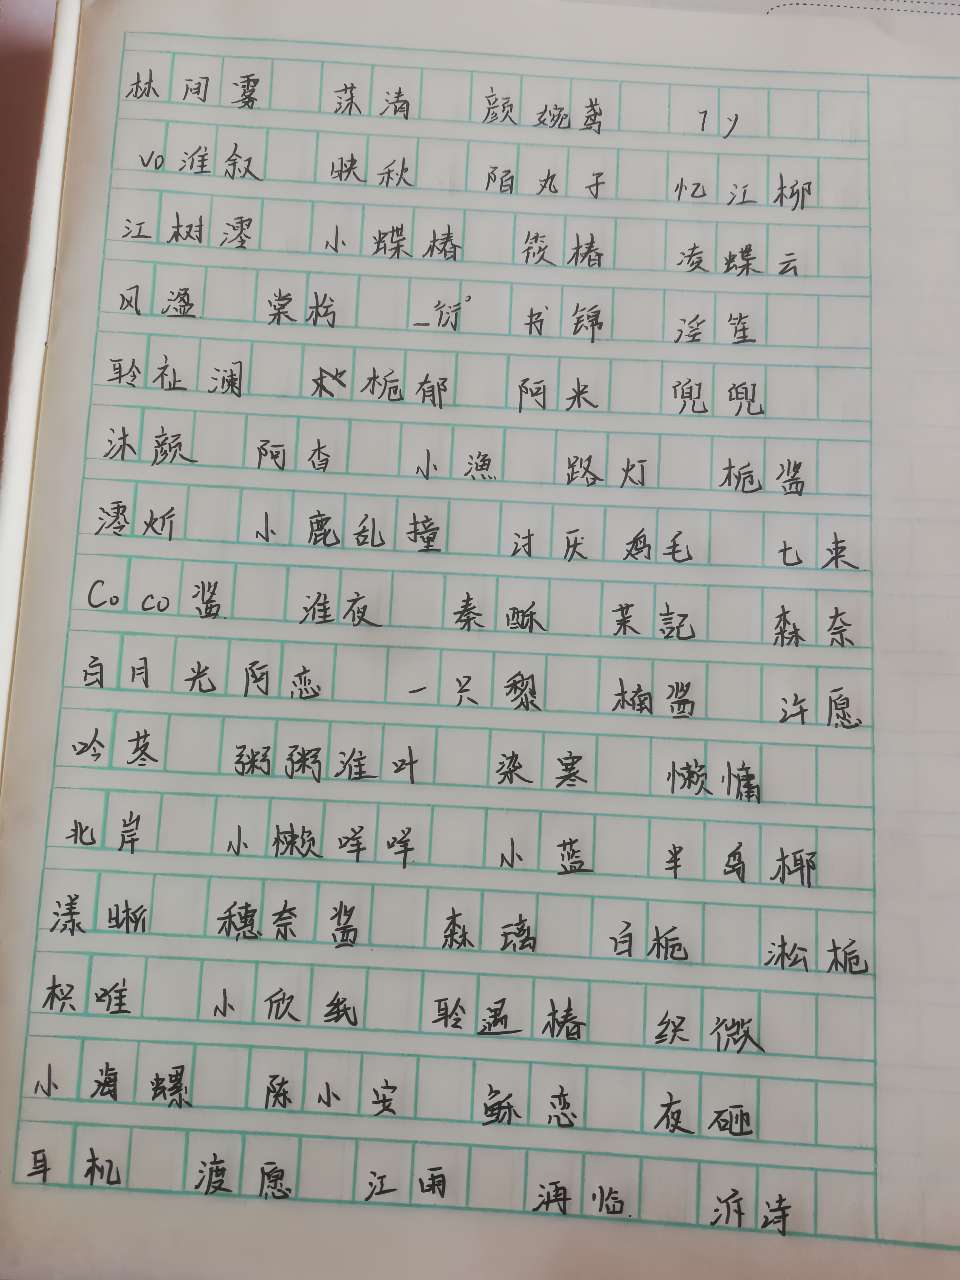 林间雾 菻清 颜婉鸢
vo淮叙 映秋 陌丸子 忆江柳
江树澪 小蝶椿 筱椿 凌蝶云
风溋 棠枍 一衍' 书锦 淫笙
聆祉澜 栀郁 阿米 兜兜
沐颜 阿杳 小渔 路灯 栀酱
澪炘 小鹿乱撞 讨厌鸡毛 七束
Coco酱 淮夜 秦酥 茉記 森奈
白月光阿恋 一只黎 楠酱 许愿
吟苳 粥粥淮叶 染寒 懒慵
北岸 小懒咩咩 小蓝 半岛椰
漾晰 穗奈酱 森璃 白栀 淞栀
枳唯 小欣纸 聆遇椿 织微
小海螺 陈小安 稣恋 夜砸
耳机 渡愿 江雨 苒临 泝诗